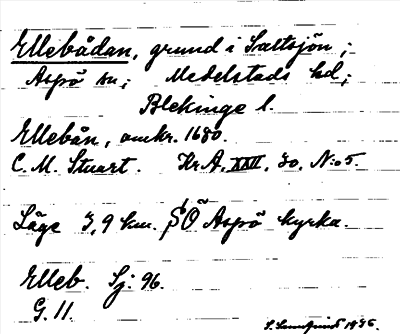 Ellebådan, grund i Saltsjön;
Aspö sn; Medelstads hd;
Blekinge l.
Ellebån, omkr. 1680.
C. M. Stuart. Kr.A. XXII, 30, N:o 5.
Läge 3,9 km. SÖ Aspö kyrka.
Elleb. Sj. 96.
G. 11.
1935